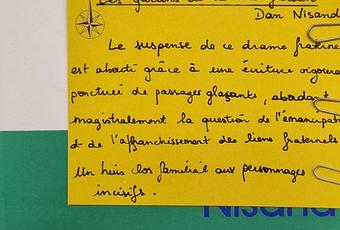 Dan Nisand
Le suspense de ce drame fraterne
est abouti grâce à une écriture vigoure
ponctuée de passages glaçants, abordant
magistralement la question de l'émancipat
et de l'affranchissement des liens fraternels
Un huis clos familial aux personnages
incisifs.
Nisand